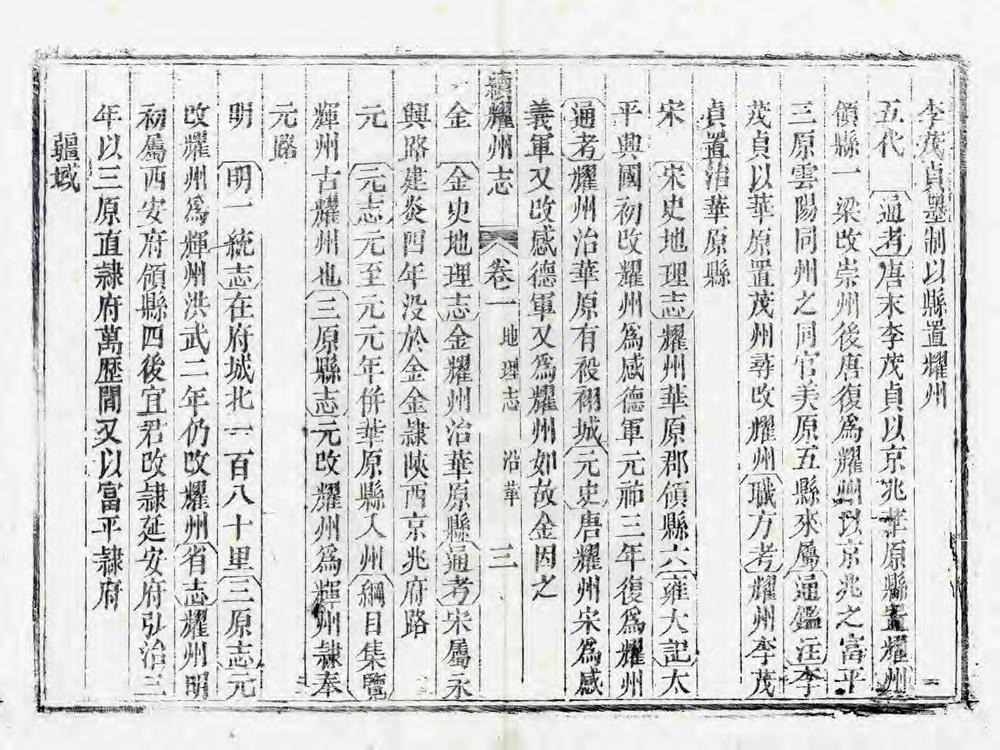 李茂貞墨制以縣置耀州
五代 通考唐末李茂貞以京兆華原縣置耀州
領縣一梁改崇州後唐復為耀州以京兆之富平
三原雲陽同州之同官美原五縣來屬通鑑注李
茂貞以華原置茂州尋改耀州職方考耀州李茂
貞置治華原縣
宋 宋史地理志耀州華原郡領縣六雍大記太
平興國初改耀州為感德軍元祐三年復為耀州
通考耀州治華原有祋祤城元史唐耀州宋為感
義軍又改感德軍又為耀州如故金因之
續耀州志 卷一 地理志 沿革 三
金 金史地理志金耀州治華原縣通考宋屬永
興路建炎四年没於金金隷陜西京兆府路
元 元志元至元元年併華原縣入州綱目集覽
輝州古耀州也三原縣志元改耀州為輝州隷奉
元路
明 明一統志在府城北一百八十里三原志元
改耀州為輝州洪武二年仍改耀州省志耀州明
初屬西安府領縣四後宜君改隷延安府弘治三
年以三原直隷府萬歴間又以富平隷府
疆域